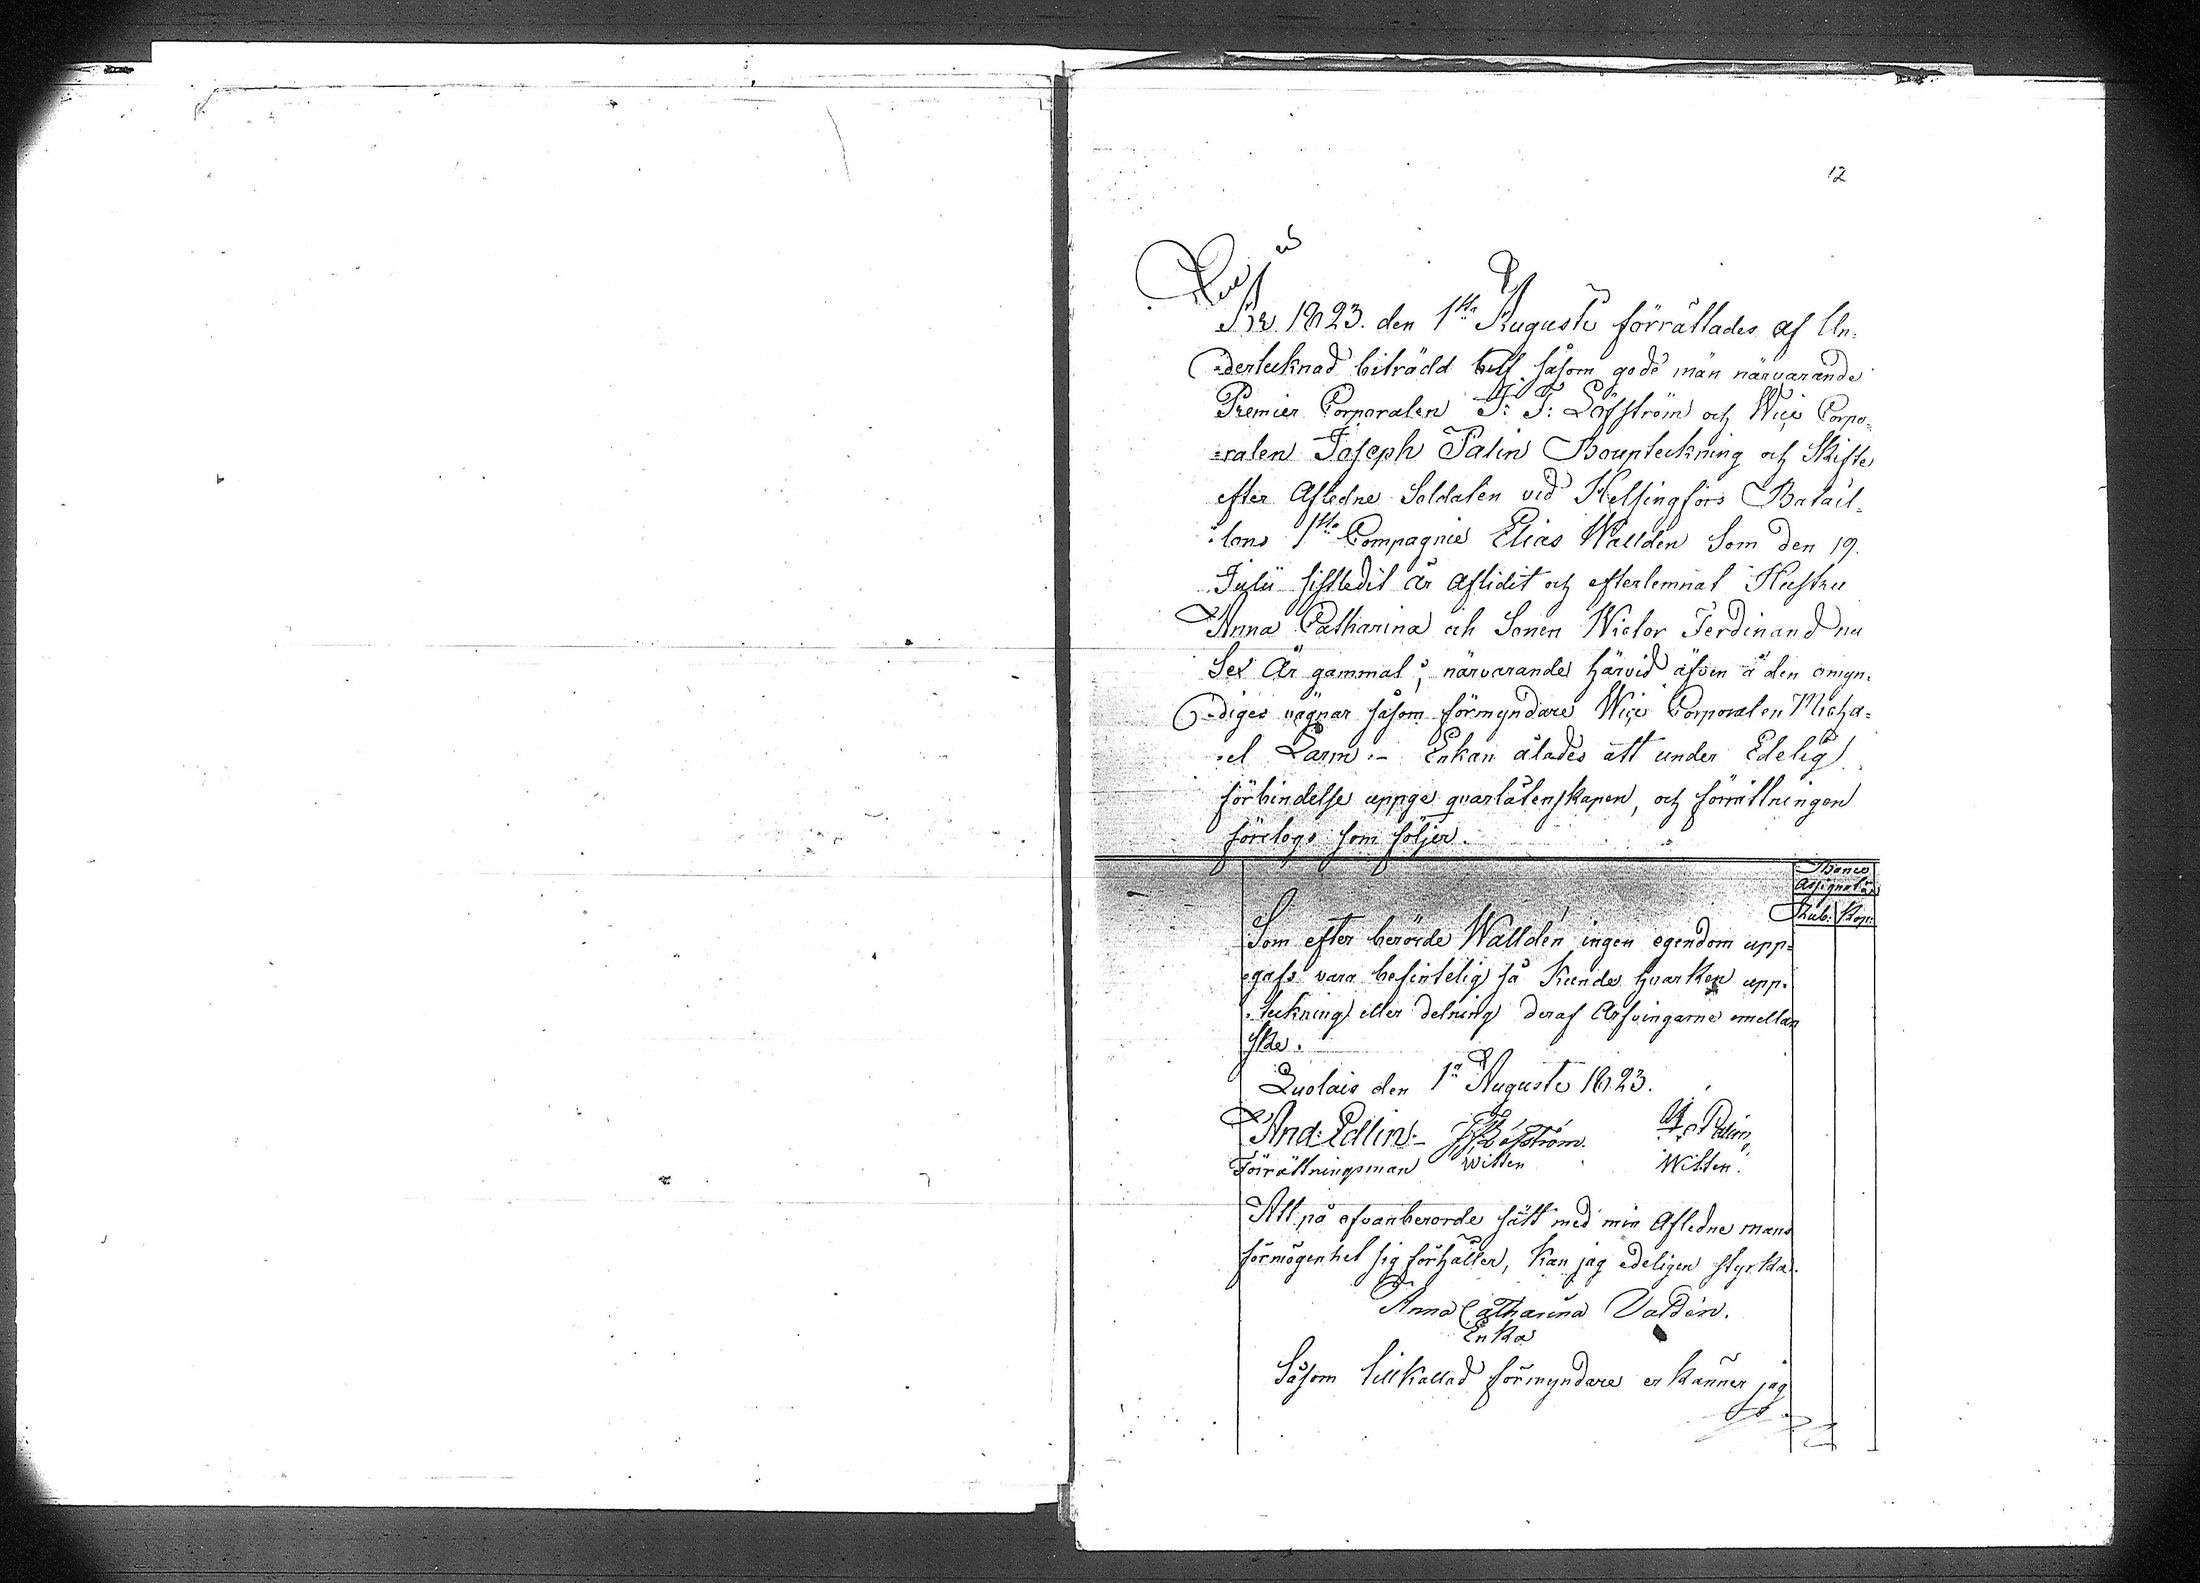 12
År 1823. den 1sta Augusti förrättades af Un-
dertecknad biträdd utaf såsom gode män närvarande
Premier Corporalen F: F: Löfström och Wice Corpo-
ralen Joseph Palin Bouptekning och Skifte
efter Afledne Soldaten vid Helsingfors Batail-
lons 1sta Compagnie Elias Wallden Som den 19.
Julii sistledit år aflidit och efterlemnat Hustru
Anna Catharina och Sonen Wictor Ferdinand nu
Sex År gammal; närvarande härvid äfven å den omyn-
diges vägnar såsom förmyndare Wice Corporalen Micha-
el Larm.- Enkan ålades att under Edelig
förbindelse uppge qvarlåtenskapen, och förrättningen
företogs som följer.
Banco
Assignatio
Rub: Kop:
Som efter berörde Walldén ingen egendom upp-
gafs vara befintelig så kunde hvarken upp-
tekning eller delning deraf Arfvingarne emellan
ske.
Quolais den 1a Augusti 1823.
And: Edlin.- F F Löfström. Palin
Förrättningsman witten Witten.
Att på ofvanberörde sätt med min Afledne mans
förmögenhet sig förhåller, kan jag edeligen styrka.
Anna Catharina Valdén.
Enka
Såsom tillkallad förmyndare erkänner jag